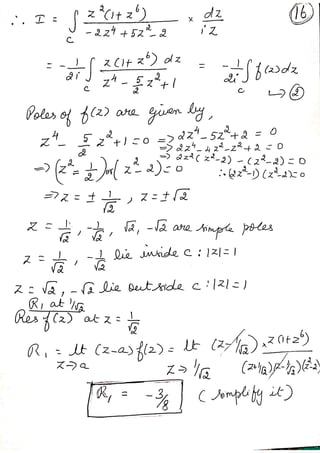 (16)
∴ I = ∫_C z²(1+z⁶) / (-2z⁴+5z²-2) × dz / iz
= -1/2i ∫_C z(1+z⁶) dz / (z⁴ - 5/2 z² + 1) = -1/2i ∫_C f(z) dz → (2)
Poles of f(z) are given by,
z⁴ - 5/2 z² + 1 = 0 => 2z⁴ - 5z² + 2 = 0
=> 2z⁴ - 4z² - z² + 2 = 0
=> (z² = 1/2) or (z² - 2) = 0 => 2z²(z²-2) - (z²-2) = 0
∴ (2z²-1)(z²-2) = 0
=> z = ± 1/√2 , z = ±√2
z = 1/√2 , -1/√2 , √2, -√2 are simple poles
z = 1/√2 , -1/√2 lie inside c : |z| = 1
z = √2 , -√2 lie outside c : |z| = 1
R₁ at 1/√2
Res f(z) at z = 1/√2
R₁ = lt z→a (z-a) f(z) = lt z→1/√2 (z-1/√2) × z(1+z⁶) / (z+1/√2)(z-1/√2)(z²-2)
R₁ = -3/8 (simplify it)